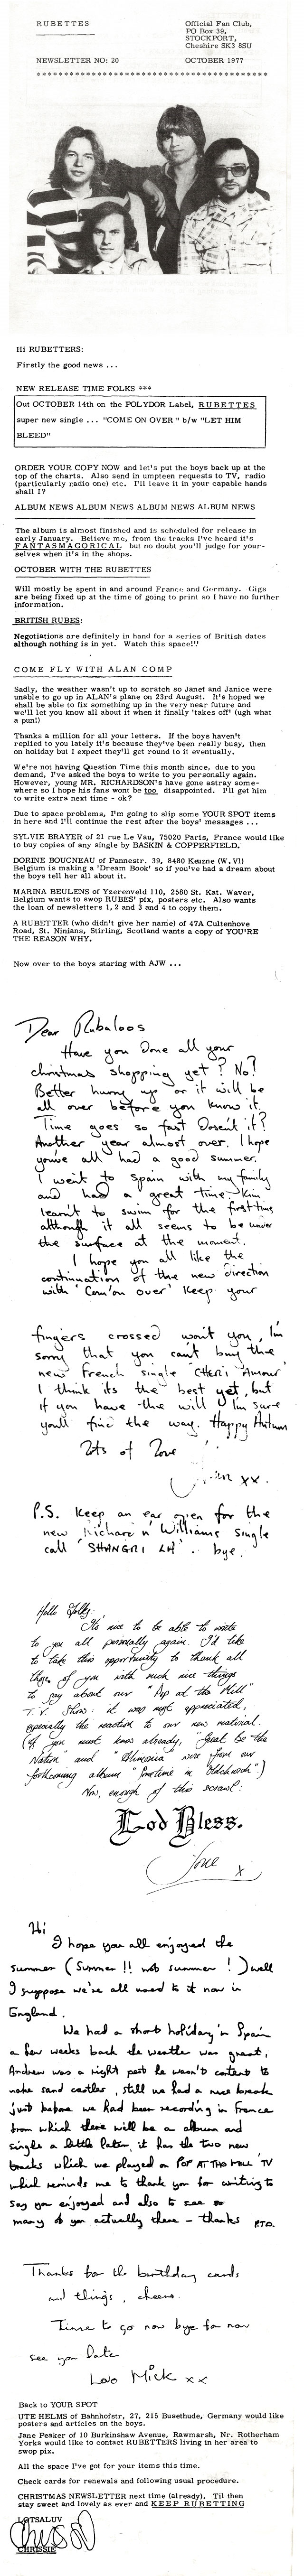 RUBETTES
Official Fan Club,
PO Box 39,
STOCKPORT,
Cheshire SK3 8SU
NEWSLETTER NO: 20
OCTOBER 1977
Hi RUBETTERS:
Firstly the good news ...
NEW RELEASE TIME FOLKS ***
Out OCTOBER 14th on the POLYDOR Label, RUBETTES
super new single ... "COME ON OVER" b/w "LET HIM
BLEED"
ORDER YOUR COPY NOW and let's put the boys back up at the
top of the charts. Also send in umpteen requests to TV, radio
(particularly radio one) etc. I'll leave it in your capable hands
shall I?
ALBUM NEWS ALBUM NEWS ALBUM NEWS ALBUM NEWS
The album is almost finished and is scheduled for release in
early January. Believe me, from the tracks I've heard it's
FANTASMAGORICAL but no doubt you'll judge for your-
selves when it's in the shops.
OCTOBER WITH THE RUBETTES
Will mostly be spent in and around France and Germany. Gigs
are being fixed up at the time of going to print so I have no further
information.
BRITISH RUBES:
Negotiations are definitely in hand for a series of British dates
although nothing is in yet. Watch this space!!
COME FLY WITH ALAN COMP
Sadly, the weather wasn't up to scratch so Janet and Janice were
unable to go up in ALAN's plane on 23rd August. It's hoped we
shall be able to fix something up in the very near future and
we'll let you know all about it when it finally 'takes off' (ugh what
a pun!)
Thanks a million for all your letters. If the boys haven't
replied to you lately it's because they've been really busy, then
on holiday but I expect they'll get round to it eventually.
We're not having Question Time this month since, due to you
demand, I've asked the boys to write to you personally again.
However, young MR. RICHARDSON's have gone astray some-
where so I hope his fans wont be too disappointed. I'll get him
to write extra next time - ok?
Due to space problems, I'm going to slip some YOUR SPOT items
in here and I'll continue the rest after the boys' messages ...
SYLVIE BRAYER of 21 rue Le Vau, 75020 Paris, France would like
to buy copies of any single by BASKIN & COPPERFIELD.
DORINE BOUCNEAU of Pannestr. 39, 8480 Keuzne (W.Vl)
Belgium is making a 'Dream Book' so if you've had a dream about
the boys tell her all about it.
MARINA BEULENS of Yzerenveld 110, 2580 St. Kat. Waver,
Belgium wants to swop RUBES' pix, posters etc. Also wants
the loan of newsletters 1, 2 and 3 and 4 to copy them.
A RUBETTER (who didn't give her name) of 47A Cultenhove
Road, St. Ninians, Stirling, Scotland wants a copy of YOU'RE
THE REASON WHY.
Now over to the boys staring with AJW ...
Dear Rubaloos
Have you done all your
christmas shopping yet? No!
Better hurry up or it will be
all over before you know it.
Time goes so fast Dosen't it?
Another year almost over. I hope
you've all had a good summer.
I went to Spain with my family
and had a great time. Kim
learnt to swim for the first time
although it all seems to be under
the surface at the moment.
I hope you all like the
continuation of the new direction
with 'Com'on over' Keep your
fingers crossed won't you, I'm
sorry that you can't buy the
new French single 'CHERI Amour'
I think its the best yet, but
if you have the will I'm sure
you'll find the way. Happy Autumn
Lots of Love
xx.
P.S. Keep an ear open for the
new Richard n' Williams single
call 'SHANGRI LA'. bye.
Hello Folks,
It's nice to be able to write
to you all personally again. I'd like
to take this opportunity to thank all
those of you with such nice things
to say about our "Pop at the Mill"
T.V. Show. it was most appreciated,
especially the reaction to our new material.
(If you must know already, "Great be the
Nation" and were from our
forthcoming album "Sometime in Oldchurch".)
Now, enough of this scrawl.
God Bless.
Tone x
Hi
I hope you all enjoyed the
summer (Summer!! not summer!) well
I suppose we're all used to it now in
England.
We had a short holiday in Spain
a few weeks back the weather was great,
Andrew was a right pest he wasn't content to
make sand castles, still we had a nice break
just before we had been recording in France
from which there will be a album and
single a little later, it has the two new
tracks which we played on POP AT THE MILL TV
which reminds me to thank you for writing to
say you enjoyed and also to see so
many of you actually there - thanks P.T.O.
Thanks for the birthday cards
and things, cheers.
Time to go now bye for now
see you later
Love Mick xx
Back to YOUR SPOT
UTE HELMS of Bahnhofstr, 27, 215 Busethude, Germany would like
posters and articles on the boys.
Jane Peaker of 10 Burkinshaw Avenue, Rawmarsh, Nr. Rotherham
Yorks would like to contact RUBETTERS living in her area to
swop pix.
All the space I've got for your items this time.
Check cards for renewals and following usual procedure.
CHRISTMAS NEWSLETTER next time (already). Til then
stay sweet and lovely as ever and KEEP RUBETTING
LOTSALUV
CHRISSIE